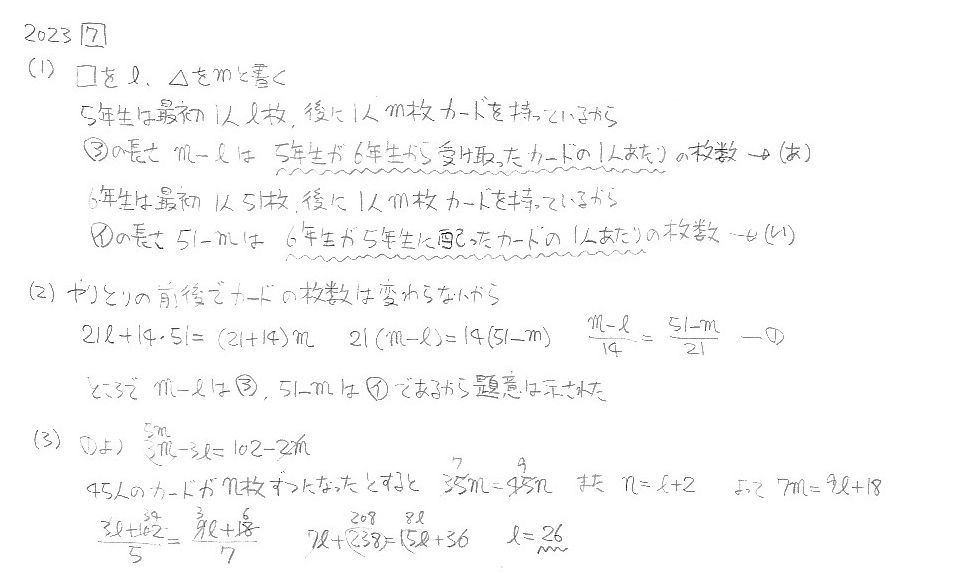 2023 7
(1) □をl、△をmと書く
5年生は最初1人l枚、後に1人m枚カードを持っているから
ウの長さ m-l は 5年生が6年生から受け取ったカードの1人あたりの枚数 → (あ)
6年生は最初1人51枚、後に1人m枚カードを持っているから
イの長さ 51-m は 6年生が5年生に配ったカードの1人あたりの枚数 → (い)
(2) やりとりの前後でカードの枚数は変わらないから
21l+14・51=(21+14)m 21(m-l)=14(51-m) (m-l)/14 = (51-m)/21 —①
ところで m-lはウ、51-mはイであるから題意は示された
(3) ①より 3m-3l=102-2m 5m
45人のカードがn枚ずつになったとすると 35m=45n 7 9 また n=l+2 よって 7m=9l+18
(3l+102)/5 = (9l+18)/7 34 3 6 7l+238=15l+36 208 8l l=26